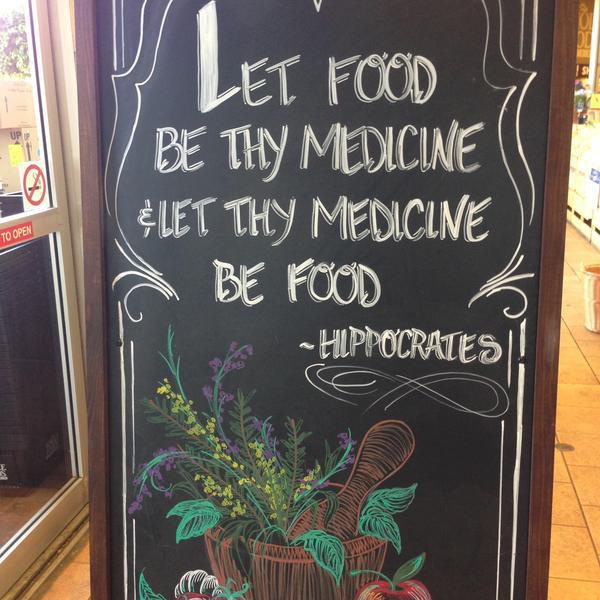 LET FOOD
BE THY MEDICINE
& LET THY MEDICINE
BE FOOD
~HIPPOCRATES
UP
TO OPEN